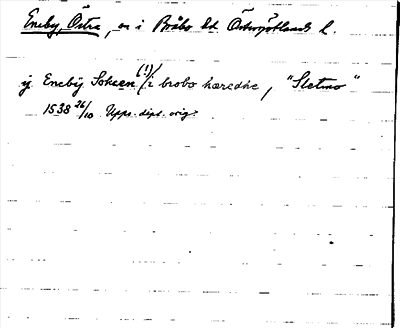 Eneby, Östra, sn i Bråbo hd Östergötlands l.
ÿ Enebÿ Sokeen (!) / i brobo hæredhe, "Sletmo"
1538 26/10 Upps. dipl. orig.